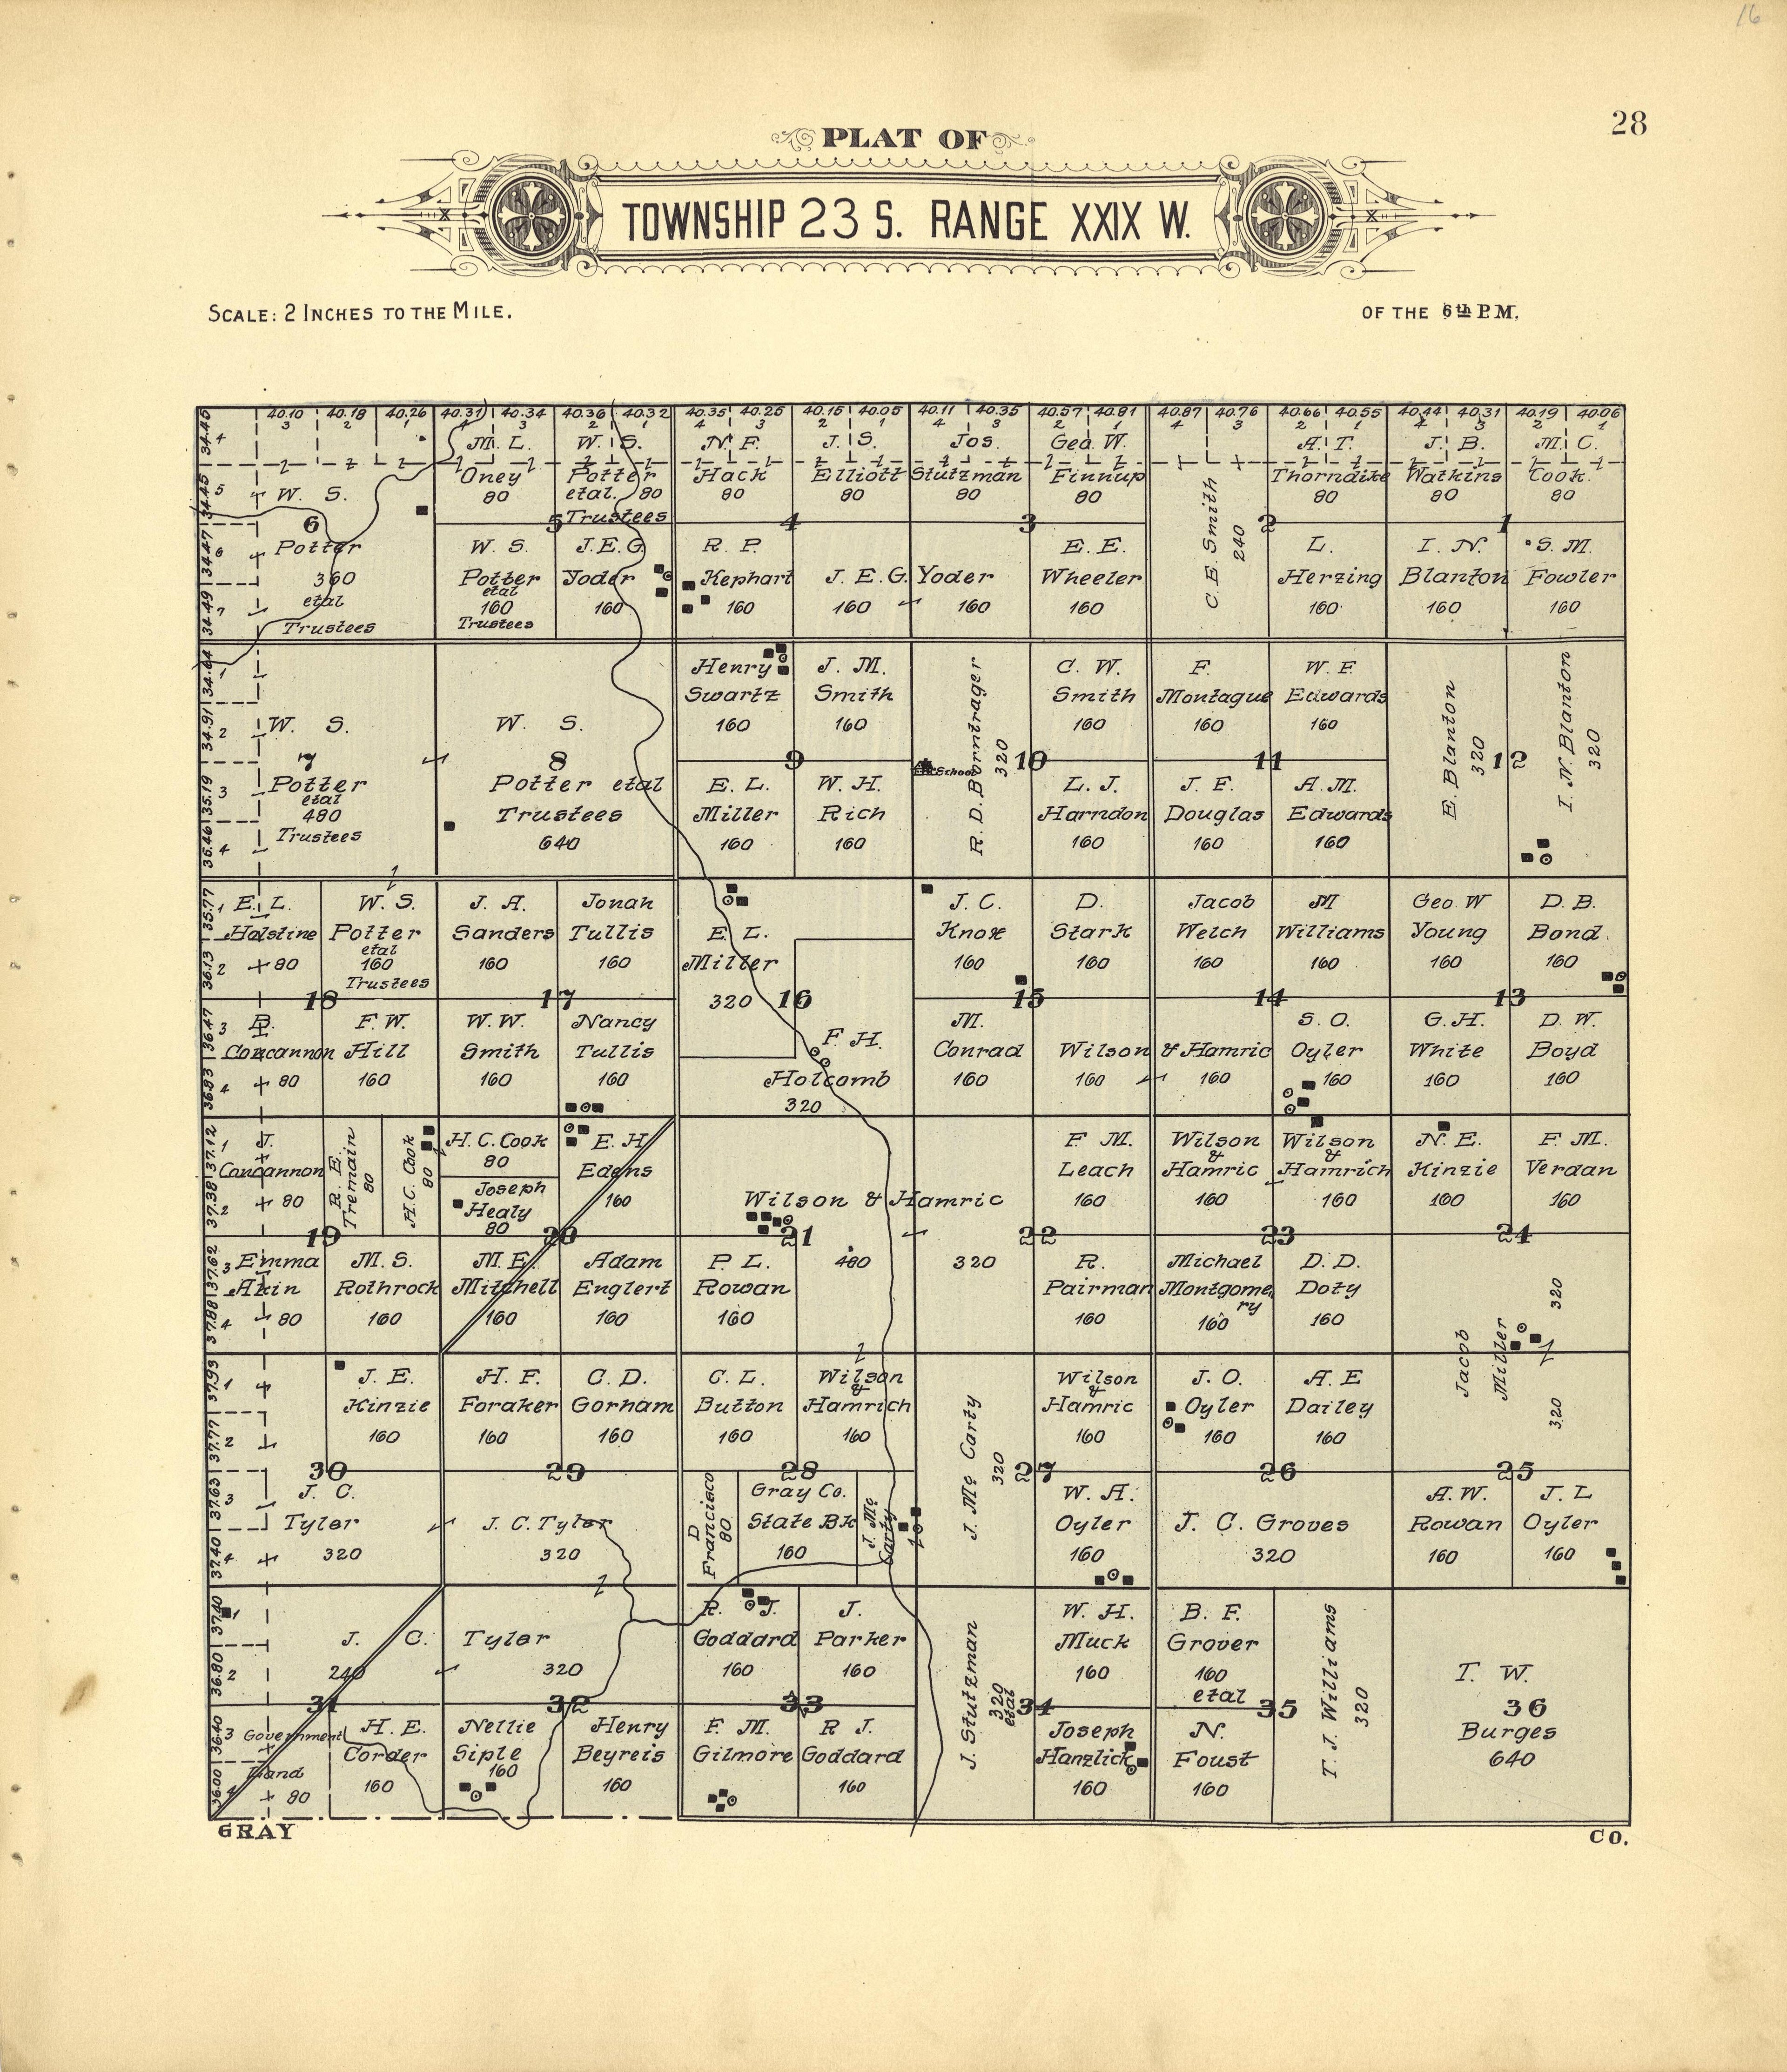 16
28
PLAT OF
TOWNSHIP 23 S. RANGE XXIX W.
SCALE: 2 INCHES TO THE MILE.
OF THE 6th P.M.
40.10 40.18 40.26 40.31 40.34 40.36 40.32 40.35 40.25 40.15 40.05 40.11 40.35 40.57 40.81 40.87 40.76 40.66 40.55 40.44 40.31 40.19 40.06
3 2 1 4 3 2 1 4 3 2 1 4 3 2 1 4 3 2 1 4 3 2 1
34.45 4
34.45 5
34.47 6
34.49 7
W. S.
6
Potter
360
etal
Trustees
M. L.
Oney
80
W. S.
Potter
etal. 80
Trustees
5
W. S.
Potter
etal
160
Trustees
J. E. G.
Yoder
160
N. F.
Hack
80
J. S.
Elliott
80
4
R. P.
Kephart
160
J. E. G. Yoder
160
160
Jos.
Stutzman
80
Geo. W.
Finnup
80
3
E. E.
Wheeler
160
C. E. Smith
240
2
A. T.
Thorndike
80
L.
Herzing
160
J. B.
Watkins
80
M. C.
Cook
80
1
I. N.
Blanton
160
S. M.
Fowler
160
34.64 1
34.91 2
35.19 3
35.46 4
W. S.
7
Potter
etal
480
Trustees
W. S.
8
Potter etal
Trustees
640
Henry
Swartz
160
J. M.
Smith
160
9
E. L.
Miller
160
W. H.
Rich
160
R. D. Borntrager
320
School
10
C. W.
Smith
160
L. J.
Harndon
160
F.
Montague
160
W. F.
Edwards
160
11
J. F.
Douglas
160
A. M.
Edwards
160
E. Blanton
320
12
I. N. Blanton
320
35.77 1
36.13 2
36.47 3
36.83 4
E. L.
Holstine
80
W. S.
Potter
etal
160
Trustees
18
B.
Concannon
80
F. W.
Hill
160
J. A.
Sanders
160
Jonah
Tullis
160
17
W. W.
Smith
160
Nancy
Tullis
160
E. L.
Miller
320
16
F. H.
Holcomb
320
J. C.
Knox
160
D.
Stark
160
15
M.
Conrad
160
Wilson & Hamric
160
160
Jacob
Welch
160
M
Williams
160
14
S. O.
Oyler
160
Geo. W
Young
160
D. B.
Bond
160
13
G. H.
White
160
D. W.
Boyd
160
37.12 1
37.38 2
37.62 3
37.88 4
J.
Concannon
80
R. E.
Tremain
80
H. C. Cook
80
19
Emma
Akin
80
M. S.
Rothrock
160
H. C. Cook
80
Joseph
Healy
80
E. H
Edens
160
20
M. E.
Mitchell
160
Adam
Englert
160
Wilson & Hamric
21
480
320
P. L.
Rowan
160
22
F. M.
Leach
160
R.
Pairman
160
Wilson
&
Hamric
160
Wilson
&
Hamrich
160
23
Michael
Montgome
ry
160
D. D.
Doty
160
N. E.
Kinzie
160
F. M.
Verdan
160
24
320
Jacob
Miller
320
37.93 1
37.77 2
37.63 3
37.40 4
J. E.
Kinzie
160
30
J. C.
Tyler
320
H. F.
Foraker
160
C. D.
Gorham
160
29
J. C. Tyler
320
C. L.
Button
160
Wilson
&
Hamrich
160
28
D
Francisco
80
Gray Co.
State Bk
160
J. Mc
Carty
J. Mc Carty
320
27
Wilson
&
Hamric
160
W. A.
Oyler
160
J. O.
Oyler
160
A. E
Dailey
160
26
J. C. Groves
320
25
A. W.
Rowan
160
J. L
Oyler
160
37.40 1
36.80 2
36.40 3
36.00 4
J. C. Tyler
240
320
31
Government
Land
80
H. E.
Corder
160
32
Nellie
Siple
160
Henry
Beyreis
160
R. J.
Goddard
160
J.
Parker
160
33
F. M.
Gilmore
R J.
Goddard
160
J. Stutzman
320
etal
34
W. H.
Muck
160
Joseph
Hanzlick
160
B. F.
Grover
160
etal
35
N.
Foust
160
T. J. Williams
320
T. W.
36
Burges
640
GRAY
CO.